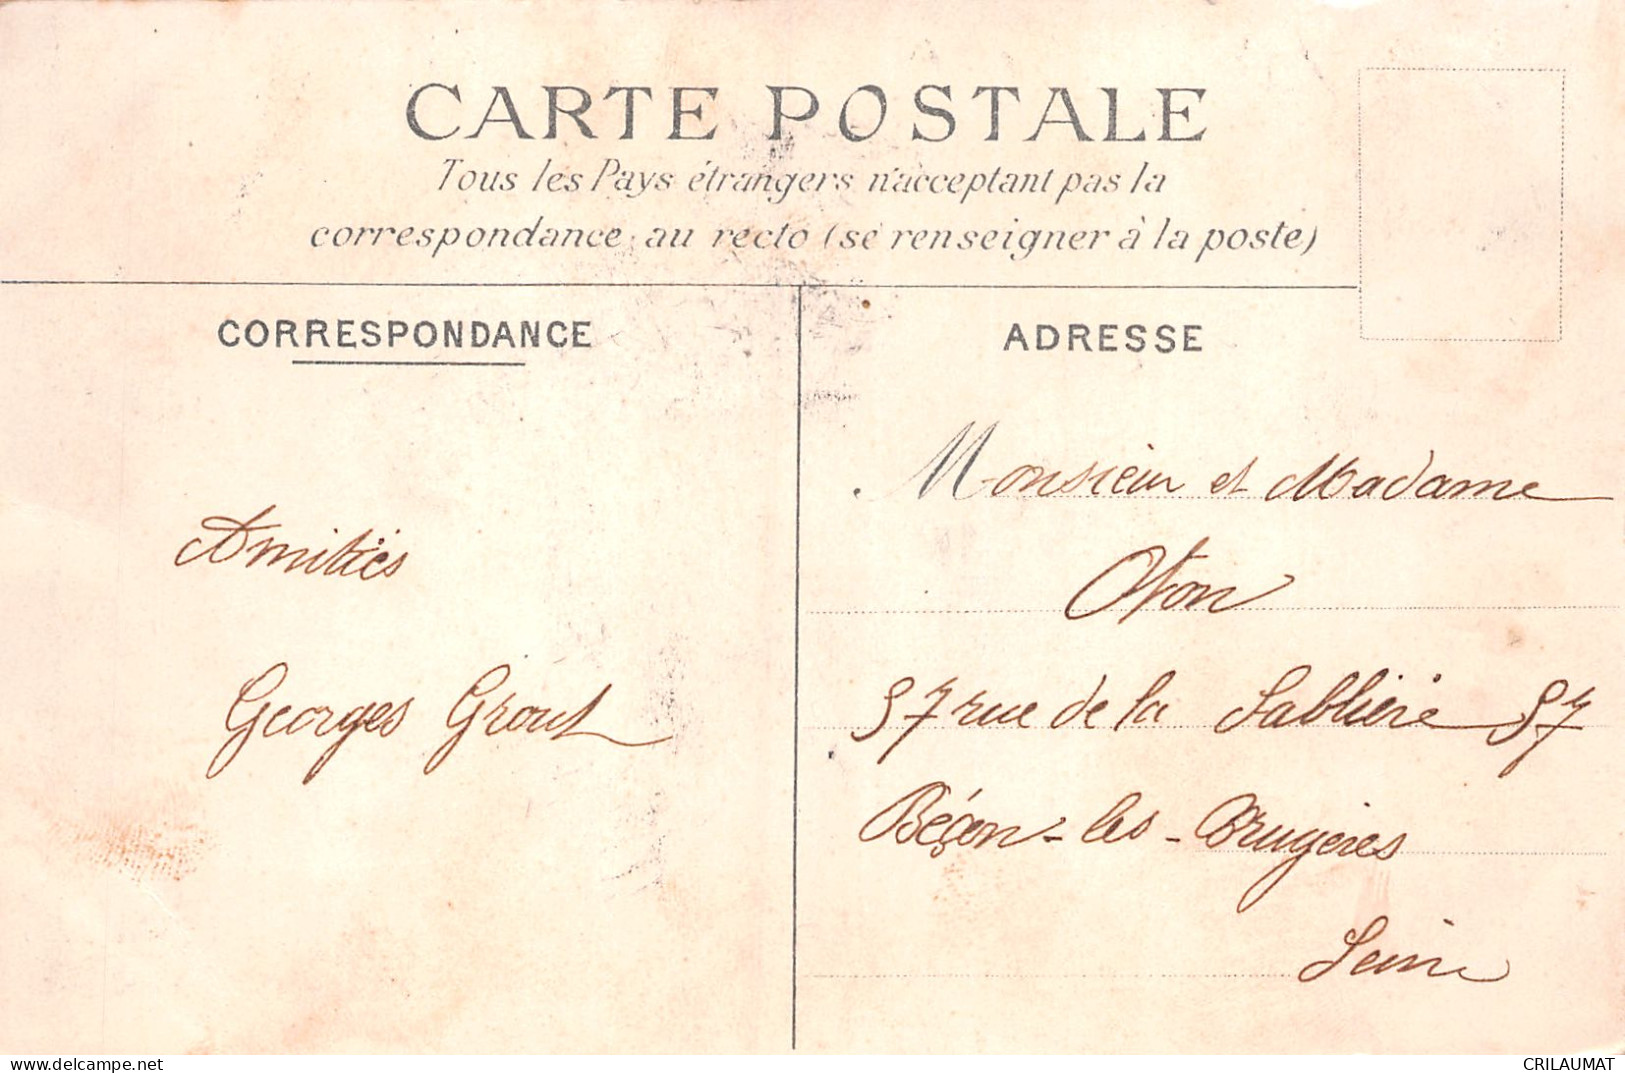 CARTE POSTALE
Tous les Pays étrangers n'acceptant pas la
correspondance au recto (se renseigner à la poste)
CORRESPONDANCE
ADRESSE
Amitiés
Georges Grout
Monsieur et Madame
Oton
57 rue de la Sablière 57
Béçon-les-Bruyères
Seine
delcampe.net
CRILAUMAT